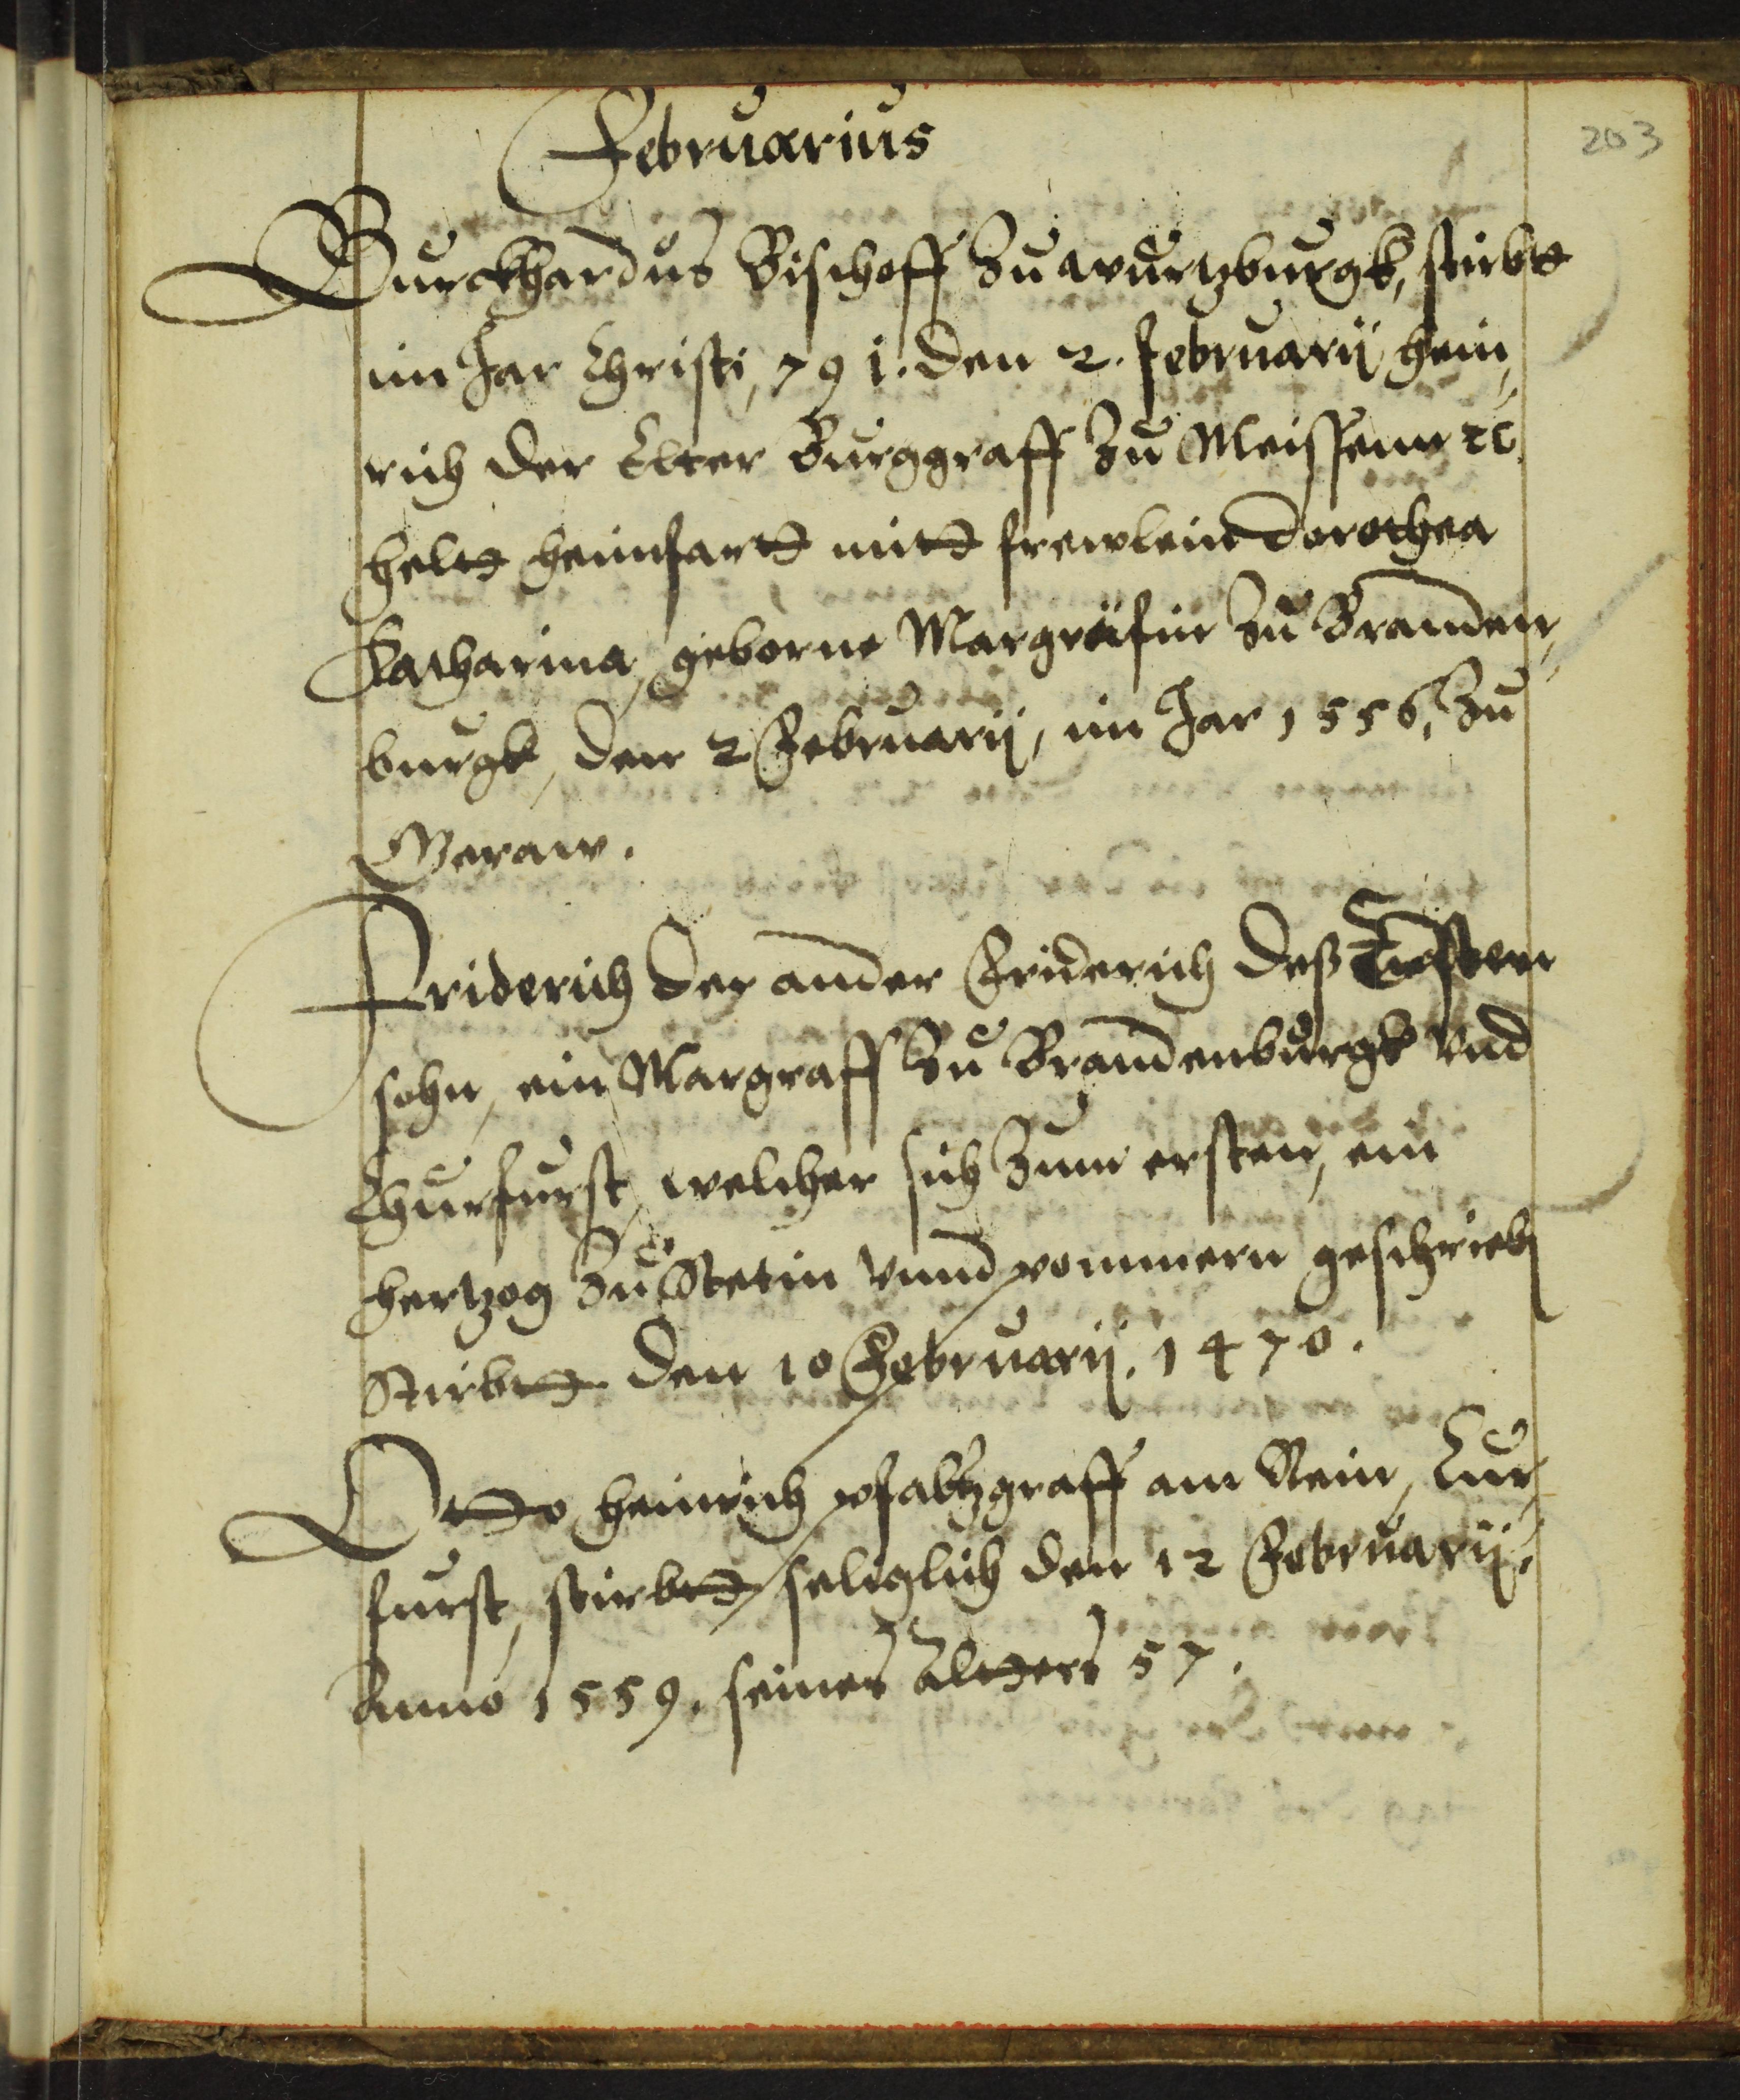 Februarius
203
Burckhardus Bischoff zu wurtzburgk, stirbtt
im Jar Christi, 791. den 2. Februarij hein,
rich der Elter Burggraff zu Meissenn ꝛc.
heltt heimfartt mitt frewlein Dorothea
Katharina, geborne Margräfin zu Branden,
burgk, den 2 Februarij, im Jar 1556. zu
Geraw.
Friderich der ander Friderich deß Ersten
sohn, ein Margraff zu Brandenburgk vnd
Churfurst, welcher sich zum ersten, ein
hertzog zu Stetin vnnd pommern geschrieben
Stirbett den 10 Februarij. 1470.
Otto heinrich pfaltzgraff am Rein, Cur,
furst, stirbett seliglich den 12 Februarij.
Anno 1559. seines Altters 57.